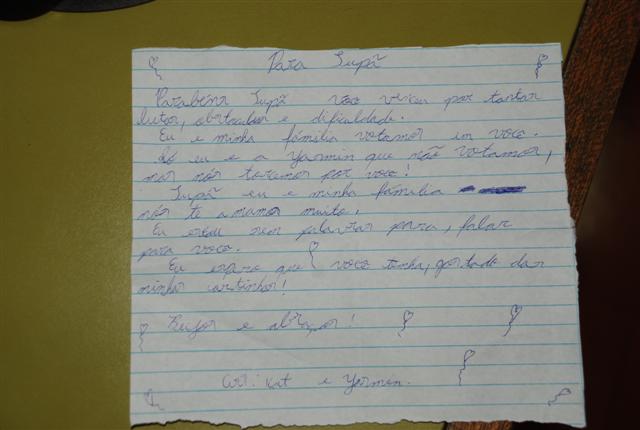 Para Tupã
Parabéns Tupã você venceu por tantas
lutas, obstaculos e dificuldade.
Eu e minha família votamos em você.
Só eu e a Yasmin que não votamos,
mas nós torcemos por você!
Tupã eu e minha família
nós te amamos muito.
Eu estou sem palavras para, falar
para você.
Eu espero que você tenha, gostado das
minhas cartinhas!
Beijos e abraços!
Ass: Kat e Yasmin.